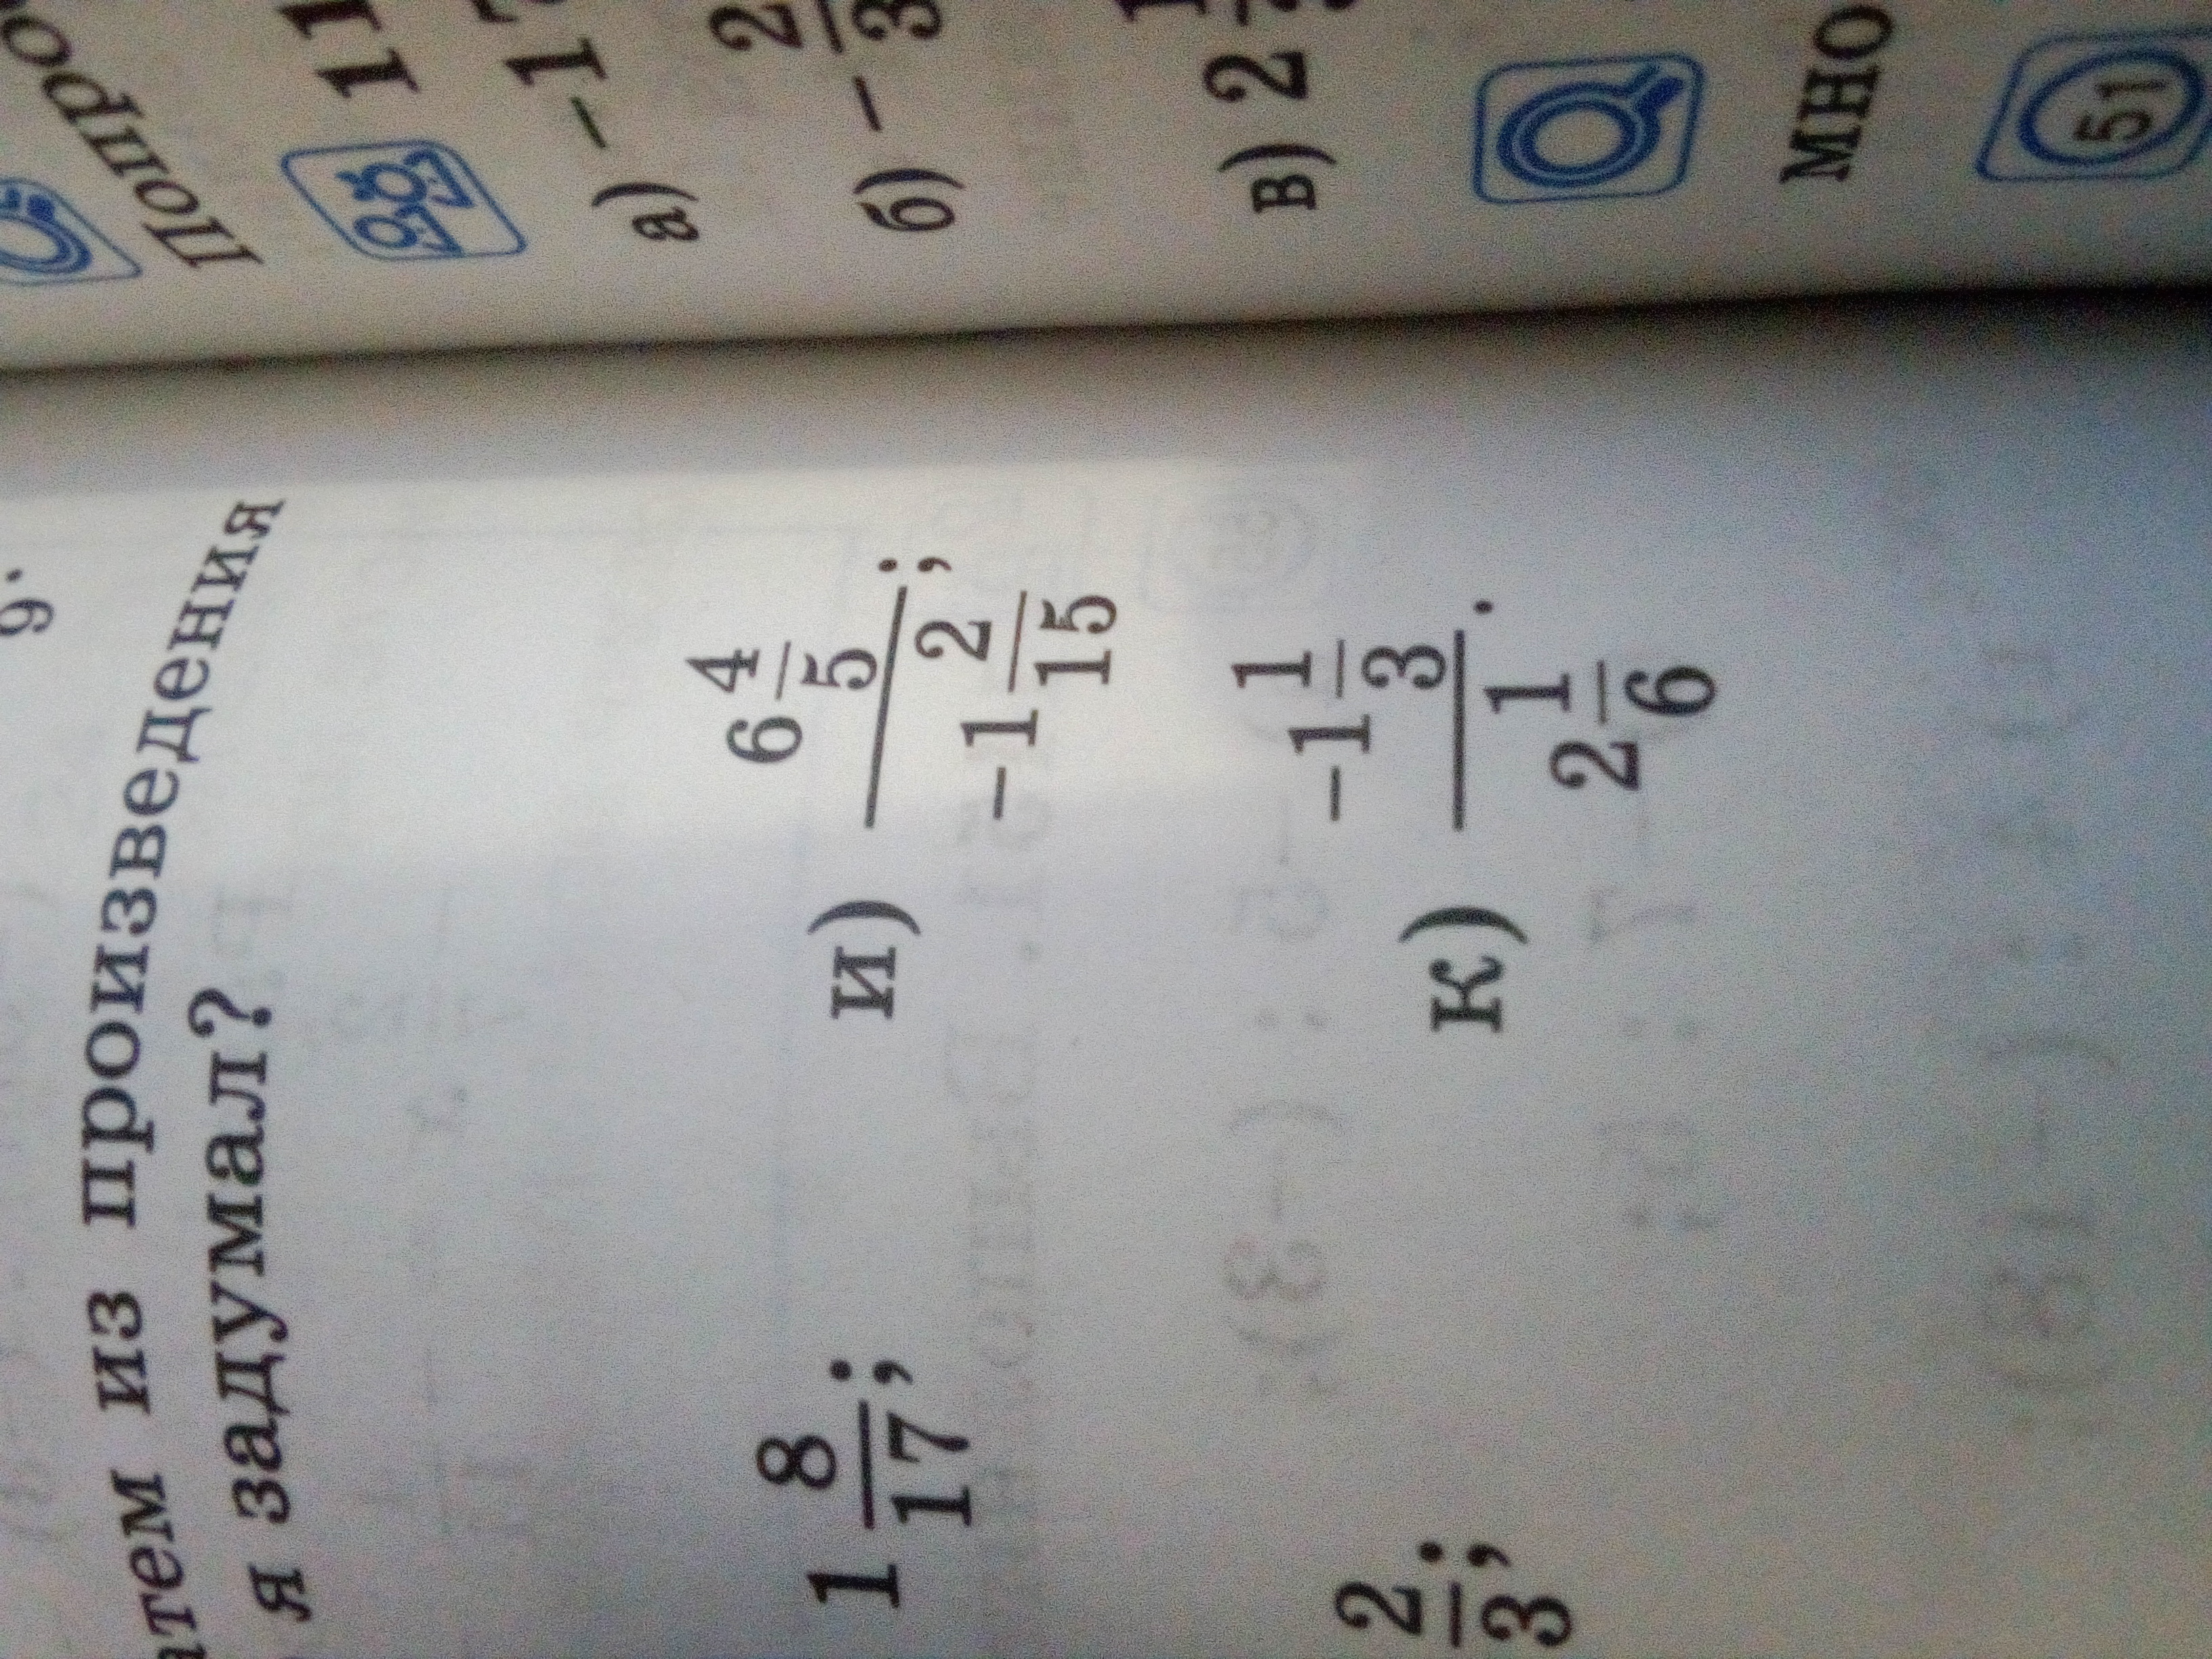 9.
из произведения
я задумал?
1 8/17;
и) 6 4/5 / -1 2/15;
2/3;
к) -1 1/3 / 2 1/6.
11
а) -1
б) - 2/3
в) 2
мно
51